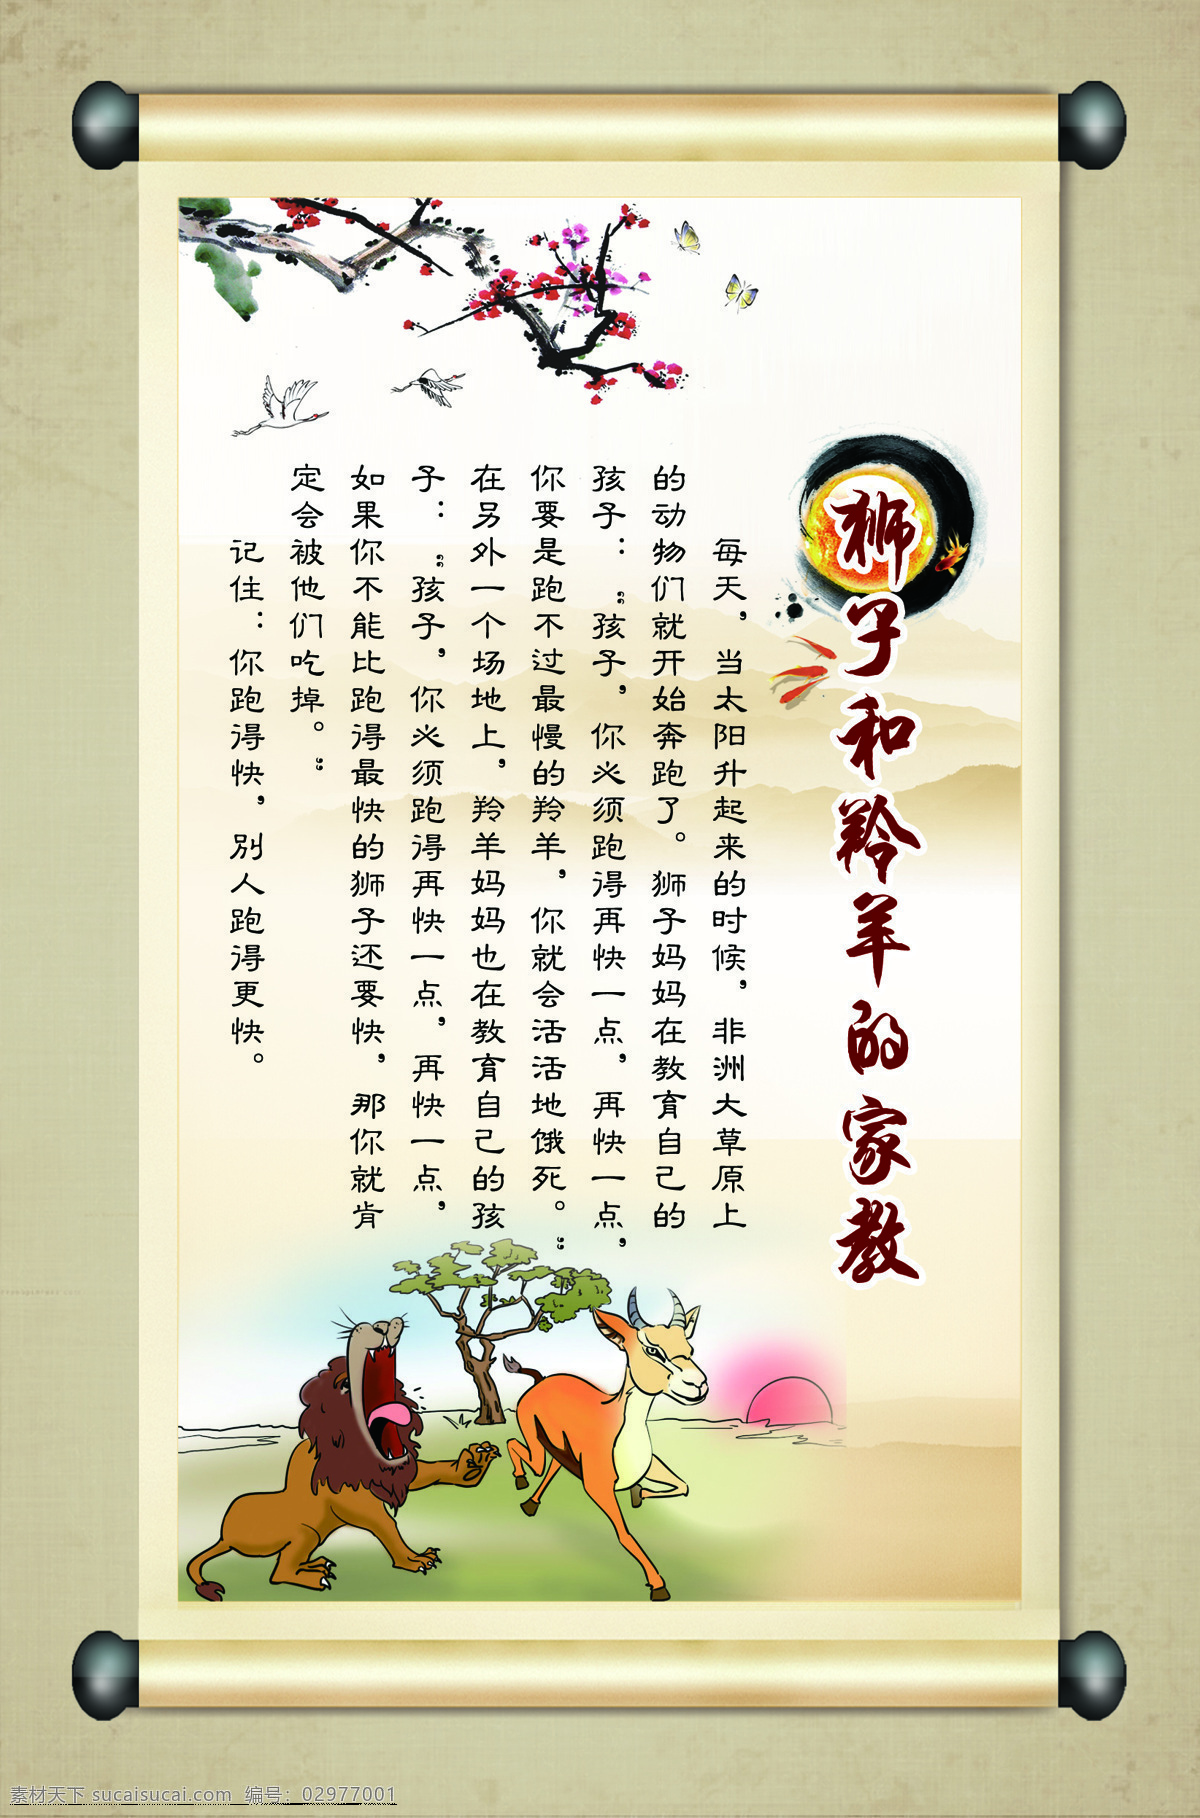 狮子和羚羊的家教
每天，当太阳升起来的时候，非洲大草原上
的动物们就开始奔跑了。狮子妈妈在教育自己的
孩子：“孩子，你必须跑得再快一点，再快一点，
你要是跑不过最慢的羚羊，你就会活活地饿死。”
在另外一个场地上，羚羊妈妈也在教育自己的孩
子：“孩子，你必须跑得再快一点，再快一点，
如果你不能比跑得最快的狮子还要快，那你就肯
定会被他们吃掉。”
记住：你跑得快，别人跑得更快。
素材天下 sucaisucai.com 编号：02977001